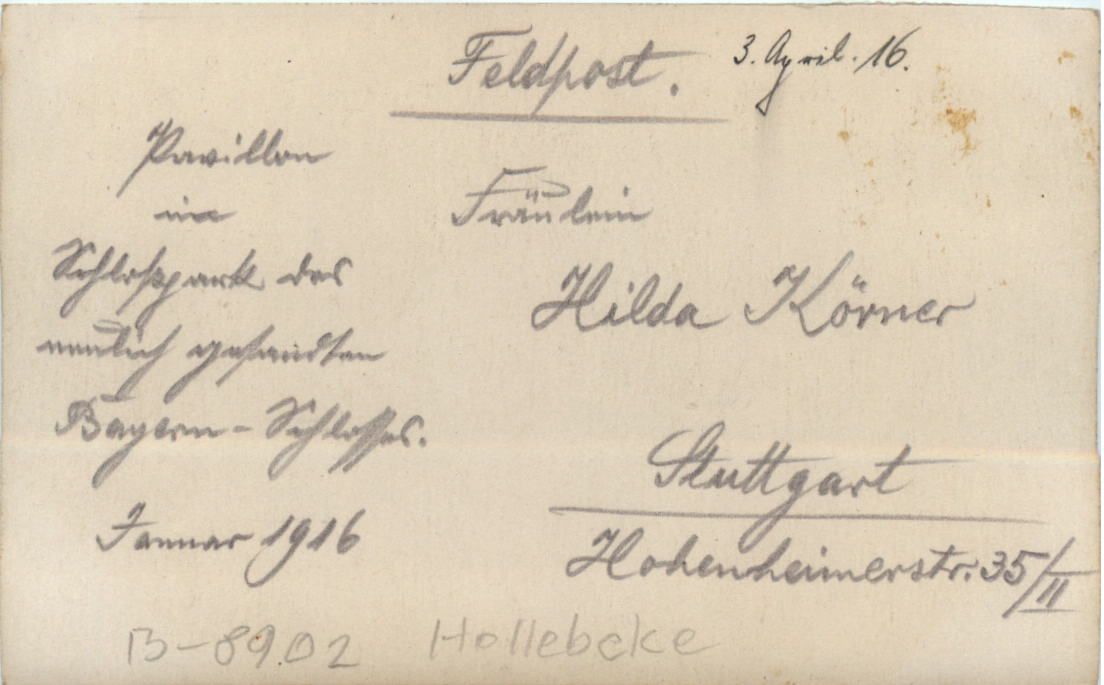 Feldpost.
3. April. 16.
Pavillon
im
Schloßpark des
neulich gesandten
Bayern-Schlosses.
Januar 1916
Fräulein
Hilda Körner
Stuttgart
Hohenheimerstr. 35/II
B-8902
Hollebeke